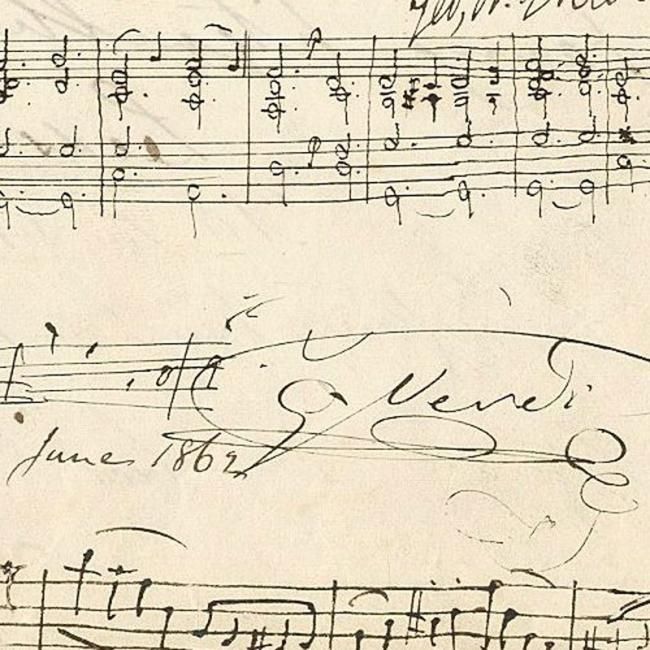 G Verdi
June 1862